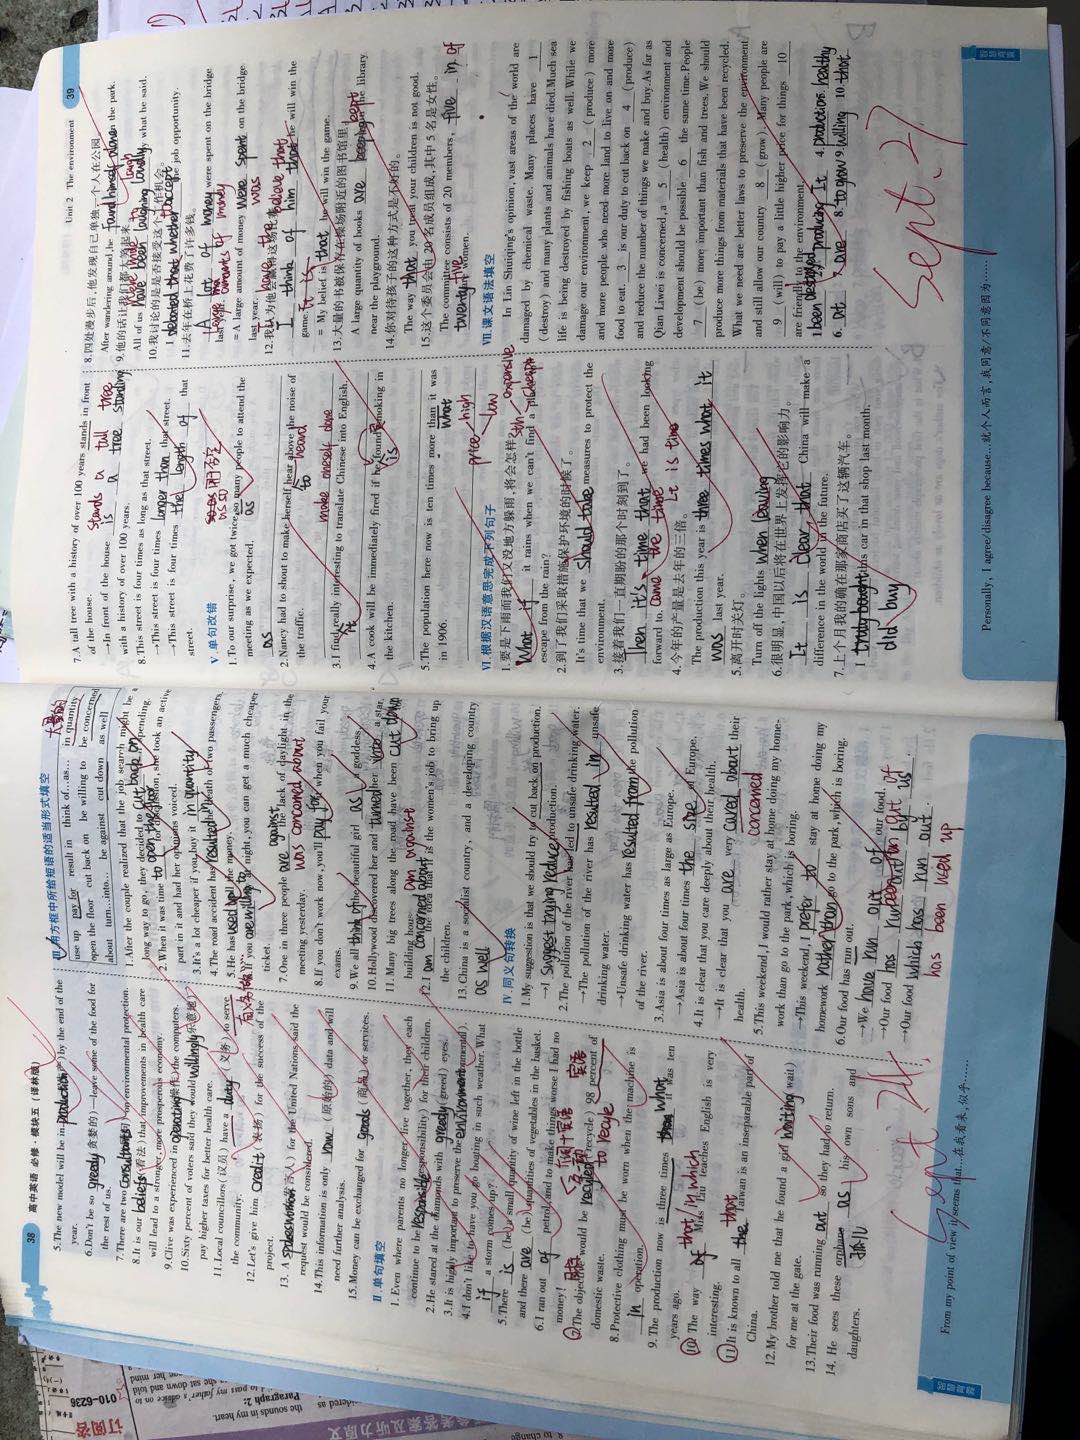 38 高中英语 必修·模块五(译林版)
5.The new model will be in production(生产) by the end of the
year.
6.Don't be so greedy(贪婪的)—leave some of the food for
the rest of us.
7.There are two consultants on environmental protection.
8.It is our beliefs(看法) that improvements in health care
will lead to a stronger, more prosperous economy.
9.Clive was experienced in operating(操作) the computers.
10.Sixty percent of voters said they would willingly(乐意地)
pay higher taxes for better health care.
11.Local councillors(议员) have a duty(义务) to serve
the community.
12.Let's give him credit(表扬) for the success of the
project.
13.A spokesman(发言人) for the United Nations said the
request would be considered.
14.This information is only raw(原始的) data and will
need further analysis.
15.Money can be exchanged for goods(商品) or services.
Ⅱ.单句填空
1.Even where parents no longer live together, they each
continue to be responsible(responsibility) for their children.
2.He stared at the diamonds with greedy(greed) eyes.
3.It is highly important to preserve the environment(environmental).
4.I don't like to have you go boating in such weather. What
if a storm comes up?
5.There is (be) a small quantity of wine left in the bottle
and there are (be) quantities of vegetables in the basket.
6.I ran out of petrol, and to make things worse I had no
money!
7.The objective would be recycled(recycle) 98 percent of
domestic waste.
to recycle
8.Protective clothing must be worn when the machine is
in operation.
9.The production now is three times what it was ten
years ago.
10.The way of that/in which Miss Liu teaches English is very
interesting.
11.It is known to all the Taiwan is an inseparable part of
China.
that
12.My brother told me that he found a girl waiting(wait)
for me at the gate.
13.Their food was running out, so they had to return.
14.He sees these orphans as his own sons and
daughters.
孤儿
Sept. 24
From my point of view, it seems that...在我看来,似乎……
Ⅲ.用方框中所给短语的适当形式填空
大量的
use up pay for result in think of...as... in quantity
open the floor cut back on be willing to be concerned
about turn...into... be against cut down as well
1.After the couple realized that the job search might be a
long way to go, they decided to cut back on spending.
2.When it was time to open the floor for discussion, she took an active
part in it and had her opinions voiced.
3.It's a lot cheaper if you buy it in quantity.
4.The road accident has resulted in the death of two passengers.
5.He has used up all the money.
6.If you are willing to fly at night, you can get a much cheaper
ticket.
7.One in three people are against the lack of daylight in the
meeting yesterday.
was concerned about
8.If you don't work now, you'll pay for it when you fail your
exams.
9.We all think of the beautiful girl as a goddess.
10.Hollywood discovered her and turned her into a star.
11.Many big trees along the road have been cut down
building houses.
12.I am concerned about the idea that it is the women's job to bring up
the children.
am against
13.China is a socialist country, and a developing country
as well.
Ⅳ.同义句转换
1.My suggestion is that we should try to cut back on production.
→I suggest trying reduce production.
2.The pollution of the river has led to unsafe drinking water.
→The pollution of the river has resulted in unsafe
drinking water.
→Unsafe drinking water has resulted from the pollution
of the river.
3.Asia is about four times as large as Europe.
→Asia is about four times the size of Europe.
4.It is clear that you care deeply about their health.
→It is clear that you are very cared about their
health.
concerned
5.This weekend, I would rather stay at home doing my home-
work than go to the park, which is boring.
→This weekend, I prefer to stay at home doing my
homework rather than go to the park, which is boring.
6.Our food has run out.
→We have run out of our food.
→Our food has been run out of by us.
→Our food which has run out.
has been used up
Unit 2 The environment 39
7.A tall tree with a history of over 100 years stands in front
of the house.
stands a tall tree
→In front of the house is a tree standing
with a history of over 100 years.
8.This street is four times as long as that street.
→This street is four times longer than that street.
→This street is four times the length of that
street.
Ⅴ.单句改错
1.To our surprise, we got twice so many people to attend the
meeting as we expected.
as
2.Nancy had to shout to make herself hear above the noise of
the traffic.
heard
make oneself done
3.I find really interesting to translate Chinese into English.
it
4.A cook will be immediately fired if he found smoking in
the kitchen.
is
5.The population here now is ten times more than it was
in 1906.
what
price high low
sth expensive cheap
Ⅵ.根据汉语意思完成下列句子
1.要是下雨而我们又没地方躲雨,将会怎样?
What if it rains when we can't find a place to
escape from the rain?
2.到了我们采取措施保护环境的时候了。
It's time that we should take measures to protect the
environment.
3.接着我们一直期盼的那个时刻到了。
Then it's time that we had been looking
forward to. came the time It is time
4.今年的产量是去年的三倍。
The production this year is three times what it
was last year.
5.离开时关灯。
Turn off the lights when leaving.
6.很明显,中国以后将在世界上发挥它的影响力。
It is clear that China will make a
difference in the world in the future.
7.上个月我的确在那家商店买了这辆汽车。
I truly bought this car in that shop last month.
did buy
8.四处漫步后,他发现自己单独一个人在公园。
After wandering around, he found himself alone in the park.
9.他的话让我们都大笑起来。
All of us have been laughing loudly what he said.
10.我讨论的是是否接受这个工作机会。
I debated that whether to accept the job opportunity.
11.去年在桥上花费了许多钱。
A lot of money were spent on the bridge
last year.
=A large amount of money were spent on the bridge
last year.
was
12.我认为他会赢得这场比赛。
I think of him that he will win the
game.
have the believe that
=My belief is that he will win the game.
13.大量的书被保存在操场附近的图书馆里。
A large quantity of books are kept in the library
near the playground.
14.你对待孩子的这种方式是不好的。
The way that you treat your children is not good.
15.这个委员会由20名成员组成,其中5名是女性。
The committee consists of 20 members, five in of
twenty five women.
Ⅶ.课文语法填空
In Lin Shuiqing's opinion, vast areas of the world are
damaged by chemical waste. Many places have 1
(destroy) and many plants and animals have died. Much sea
life is being destroyed by fishing boats as well. While we
damage our environment, we keep 2 (produce) more
and more people who need more land to live on and more
food to eat. 3 is our duty to cut back on 4 (produce)
and reduce the number of things we make and buy. As far as
Qian Liwei is concerned, a 5 (health) environment and
development should be possible 6 the same time. People
7 (be) more important than fish and trees. We should
produce more things from materials that have been recycled.
What we need are better laws to preserve the environment
and still allow our country 8 (grow). Many people are
9 (will) to pay a little higher price for things 10
are friendly to the environment.
1.been destroyed 2.producing 3.It 4.production 5.healthy
6.at 7.are 8.to grow 9.willing 10.that
Sept. 27
Personally, I agree/disagree because...就个人而言,我同意/不同意因为……